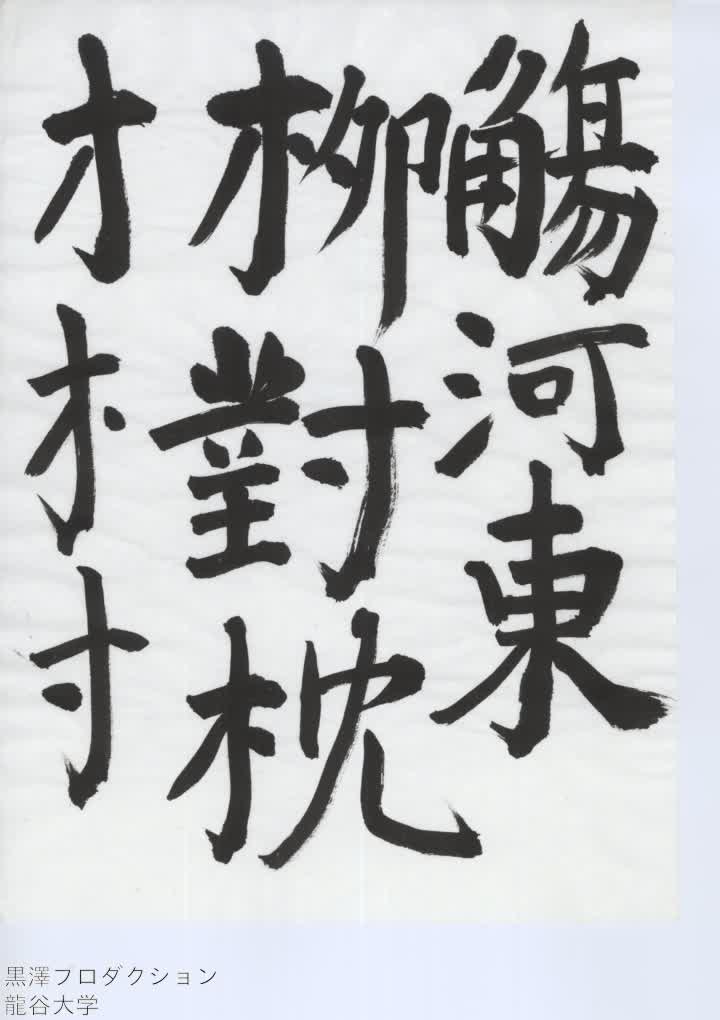 觴河東
柳對枕
才木寸
黒澤プロダクション
龍谷大学